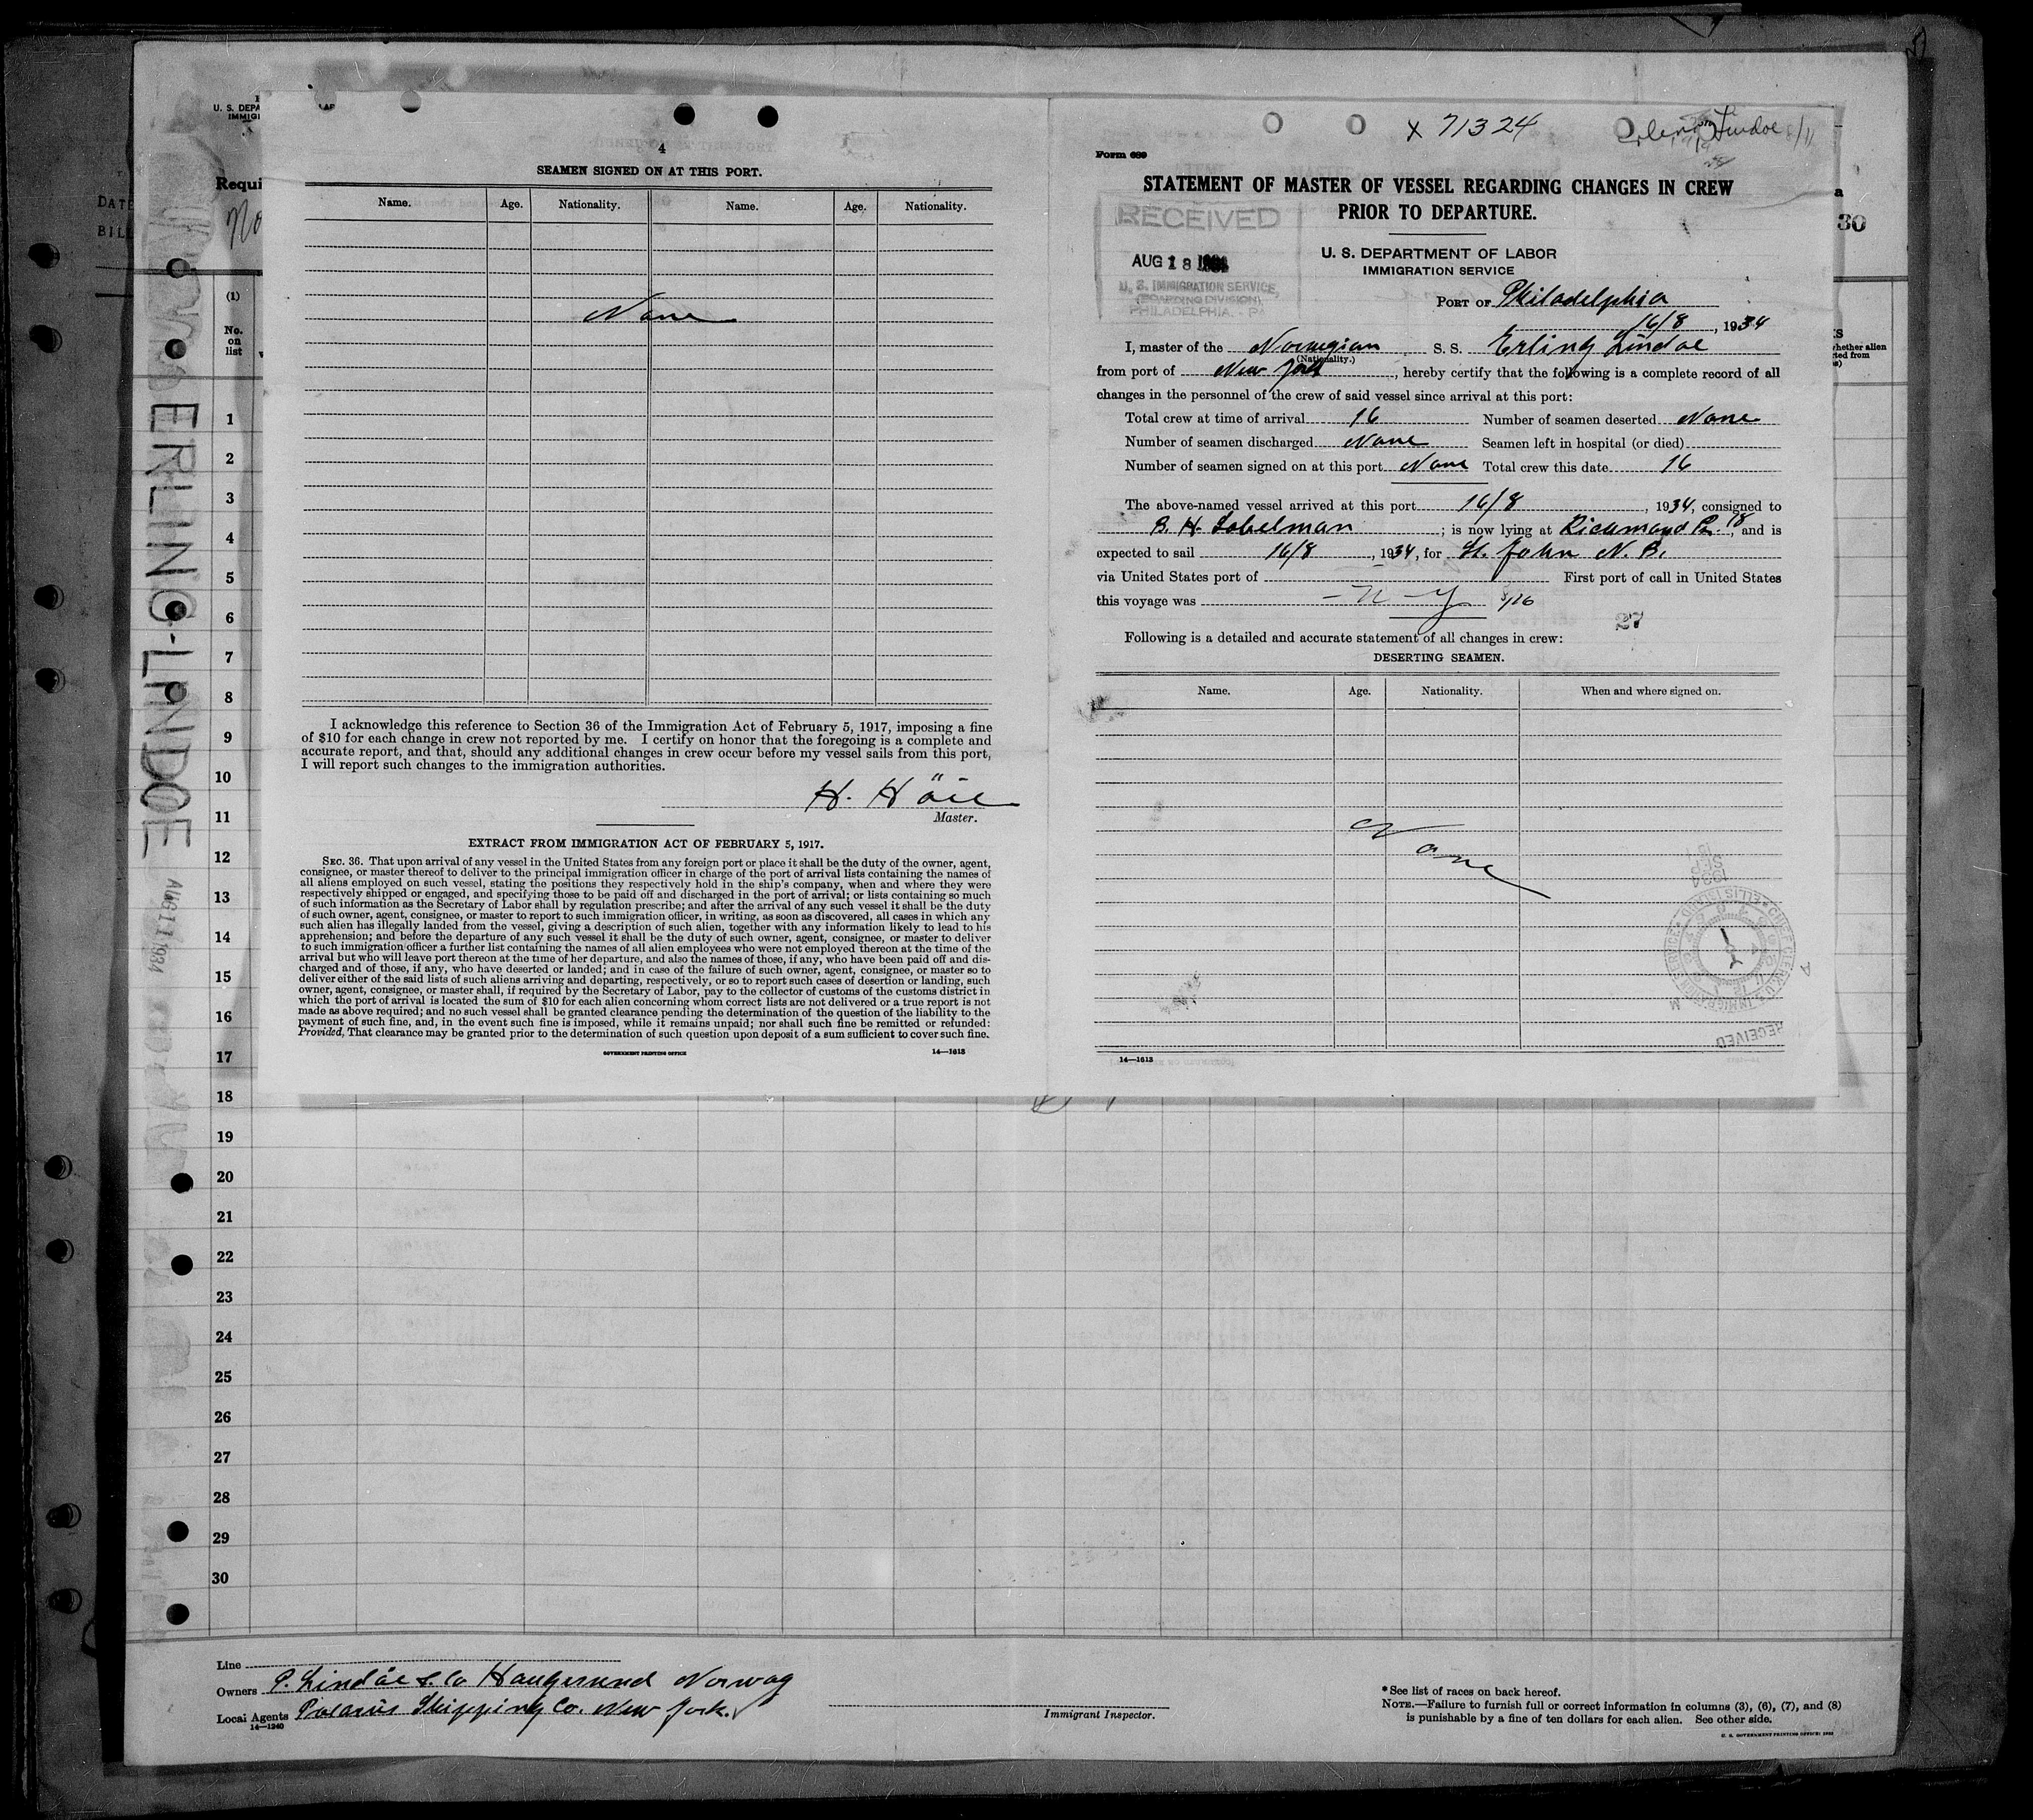 4
SEAMEN SIGNED ON AT THIS PORT.
Name. Age. Nationality. Name. Age. Nationality.
None
I acknowledge this reference to Section 36 of the Immigration Act of February 5, 1917, imposing a fine
of $10 for each change in crew not reported by me. I certify on honor that the foregoing is a complete and
accurate report, and that, should any additional changes in crew occur before my vessel sails from this port,
I will report such changes to the immigration authorities.
Master.
EXTRACT FROM IMMIGRATION ACT OF FEBRUARY 5, 1917.
SEC. 36. That upon arrival of any vessel in the United States from any foreign port or place it shall be the duty of the owner, agent,
consignee, or master thereof to deliver to the principal immigration officer in charge of the port of arrival lists containing the names of
all aliens employed on such vessel, stating the positions they respectively hold in the ship's company, when and where they were
respectively shipped or engaged, and specifying those to be paid off and discharged in the port of arrival; or lists containing so much
of such information as the Secretary of Labor shall by regulation prescribe; and after the arrival of any such vessel it shall be the duty
of such owner, agent, consignee, or master to report to such immigration officer, in writing, as soon as discovered, all cases in which any
such alien has illegally landed from the vessel, giving a description of such alien, together with any information likely to lead to his
apprehension; and before the departure of any such vessel it shall be the duty of such owner, agent, consignee, or master to deliver
to such immigration officer a further list containing the names of all alien employees who were not employed thereon at the time of the
arrival but who will leave port thereon at the time of her departure, and also the names of those, if any, who have been paid off and dis-
charged and of those, if any, who have deserted or landed; and in case of the failure of such owner, agent, consignee, or master so to
deliver either of the said lists of such aliens arriving and departing, respectively, or so to report such cases of desertion or landing, such
owner, agent, consignee, or master shall, if required by the Secretary of Labor, pay to the collector of customs of the customs district in
which the port of arrival is located the sum of $10 for each alien concerning whom correct lists are not delivered or a true report is not
made as above required; and no such vessel shall be granted clearance pending the determination of the question of the liability to the
payment of such fine, and, in the event such fine is imposed, while it remains unpaid; nor shall such fine be remitted or refunded:
Provided, That clearance may be granted prior to the determination of such question upon deposit of a sum sufficient to cover such fine.
GOVERNMENT PRINTING OFFICE 14—1613
X 71324
Form 689
STATEMENT OF MASTER OF VESSEL REGARDING CHANGES IN CREW
PRIOR TO DEPARTURE.
RECEIVED
AUG 18
U. S. IMMIGRATION SERVICE,
(BOARDING DIVISION)
PHILADELPHIA. - PA
U. S. DEPARTMENT OF LABOR
IMMIGRATION SERVICE
PORT OF Philadelphia
16/8, 1934
I, master of the Norwegian S. S. Erling Lindoe
(Nationality.)
from port of New York, hereby certify that the following is a complete record of all
changes in the personnel of the crew of said vessel since arrival at this port:
Total crew at time of arrival 16 Number of seamen deserted None
Number of seamen discharged None Seamen left in hospital (or died)
Number of seamen signed on at this port None Total crew this date 16
The above-named vessel arrived at this port 16/8, 1934, consigned to
B. H. Sobelman; is now lying at Richmond Pr. 18, and is
expected to sail 16/8, 1934, for St. John N. B.
via United States port of First port of call in United States
this voyage was - N - Y 8/16
27
Following is a detailed and accurate statement of all changes in crew:
DESERTING SEAMEN.
Name. Age. Nationality. When and where signed on.
None
RECEIVED
14—1613
ERLING-LINDOE
AUG 11 1934
U. S. DEPA
IMMIGI
Requi
No
DATE
BILL
30
(1)
No.
on
list
whether alien
1
2
3
4
5
6
7
8
9
10
11
12
13
14
15
16
17
18
19
20
21
22
23
24
25
26
27
28
29
30
Line
Owners P. Lindöe & Co Haugesund Norway
Local Agents Polarus Shipping Co. New York.
14—1240
Immigrant Inspector.
*See list of races on back hereof.
NOTE.—Failure to furnish full or correct information in columns (3), (6), (7), and (8)
is punishable by a fine of ten dollars for each alien. See other side.